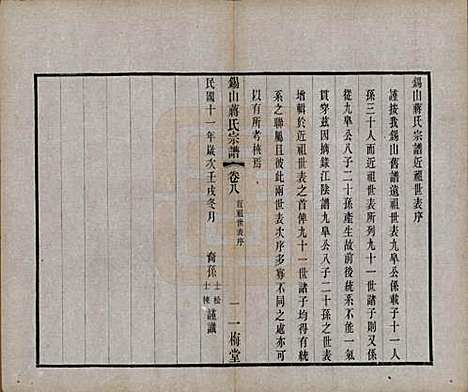 錫山蔣氏宗譜近祖世表序
謹按我錫山舊譜遠祖世表九皋公係載子十一人
孫三十人而近祖世表所列九十一世諸子則又係
從九皋公八子二十孫產生故前後統系不能一氣
貫穿茲因摘錄江陰譜九皋公八子二十孫之世表
增輯於近祖世表之首俾九十一世諸子均得有統
系之聯屬且彼此兩世表次序多寡不同之處亦可
以有所考核焉
錫山蔣氏宗譜 卷八 近祖世表序 一 一梅堂
民國十一年歲次壬戌冬月 裔孫 士松 士棟 謹識